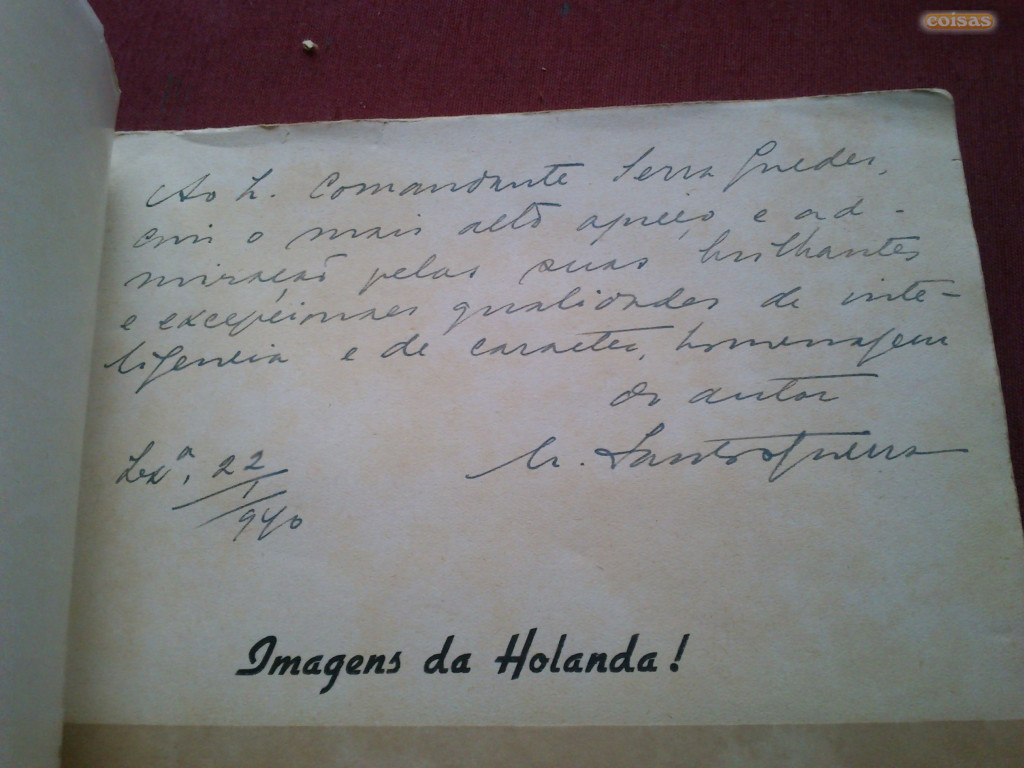 coisas
Ao S. Comandante Serra Guedes,
com o mais alto apreço e ad-
miração pelas suas brilhantes
e excepcionaes qualidades de inte-
ligencia e de caracter, homenagem
do autor
Santos Guerra
Lxª, 22/1/940
Imagens da Holanda!